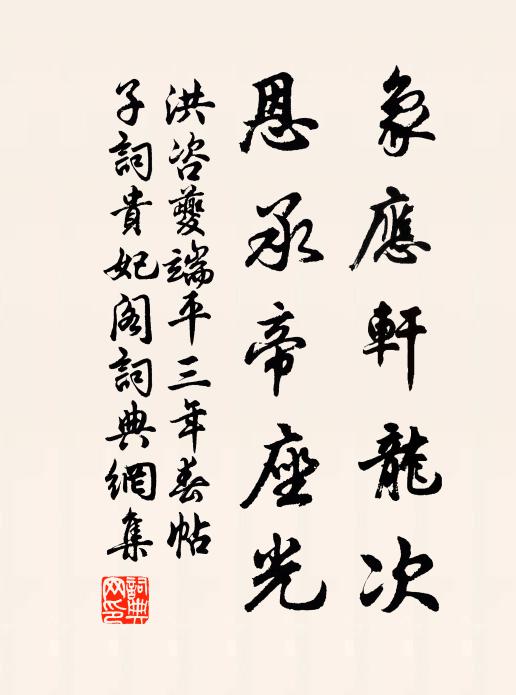 象應軒龍次
恩承帝座光
洪咨夔端平三年春帖
子詞貴妃閣詞典網集
詞典網印